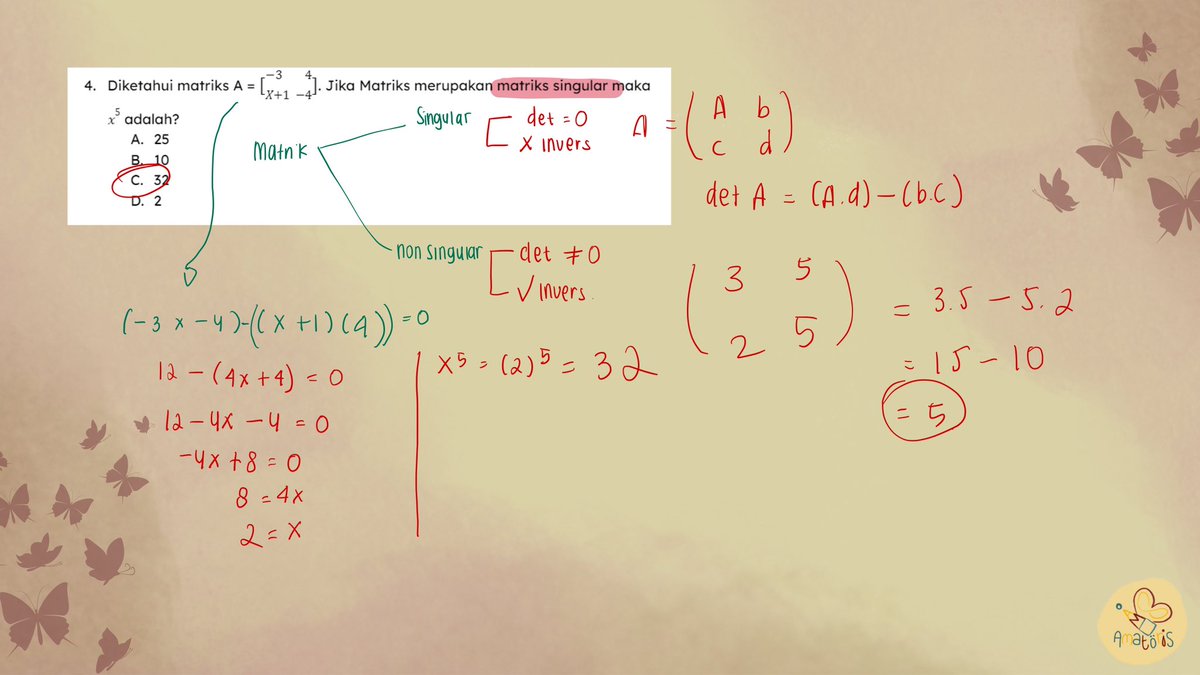 4. Diketahui matriks A = [-3 4
X+1 -4]. Jika Matriks merupakan matriks singular maka
x^5 adalah?
A. 25
B. 10
C. 32
D. 2
Matrik
Singular
det = 0
X invers
non singular
det ≠ 0
√ invers.
A = (A b
c d)
det A = (A.d) - (b.c)
(-3 x -4)-((x +1)(4)) = 0
12 - (4x + 4) = 0
12 - 4x - 4 = 0
-4x + 8 = 0
8 = 4x
2 = x
x^5 = (2)^5 = 32
(3 5
2 5)
= 3.5 - 5.2
= 15 - 10
= 5
Amatöris